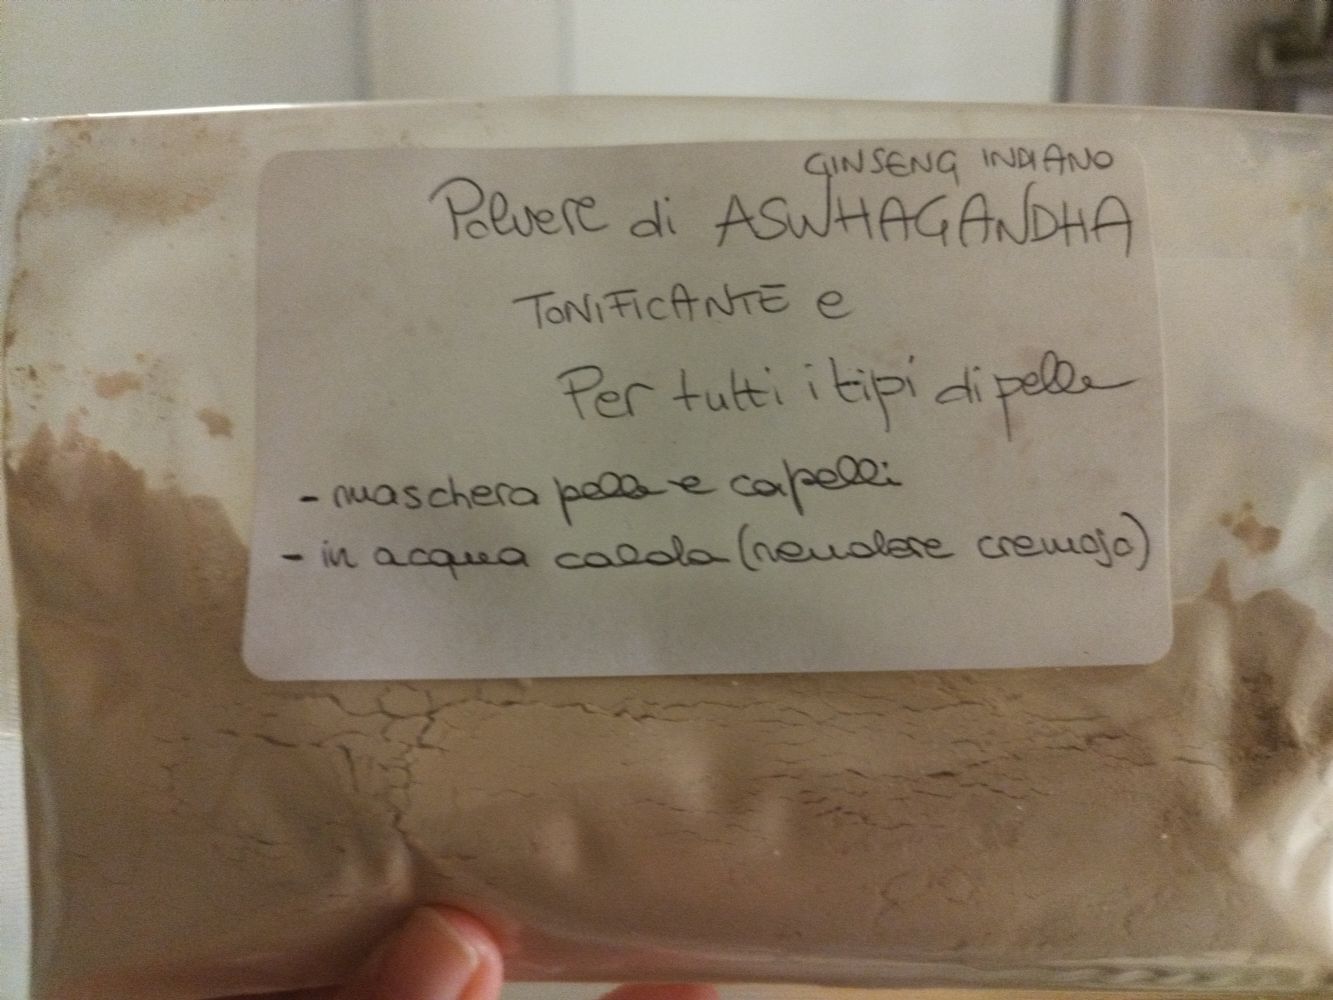 GINSENG INDIANO
Polvere di ASWHAGANDHA
TONIFICANTE e
Per tutti i tipi di pelle
- maschera pelle e capelli
- in acqua calda (rendere cremoso)